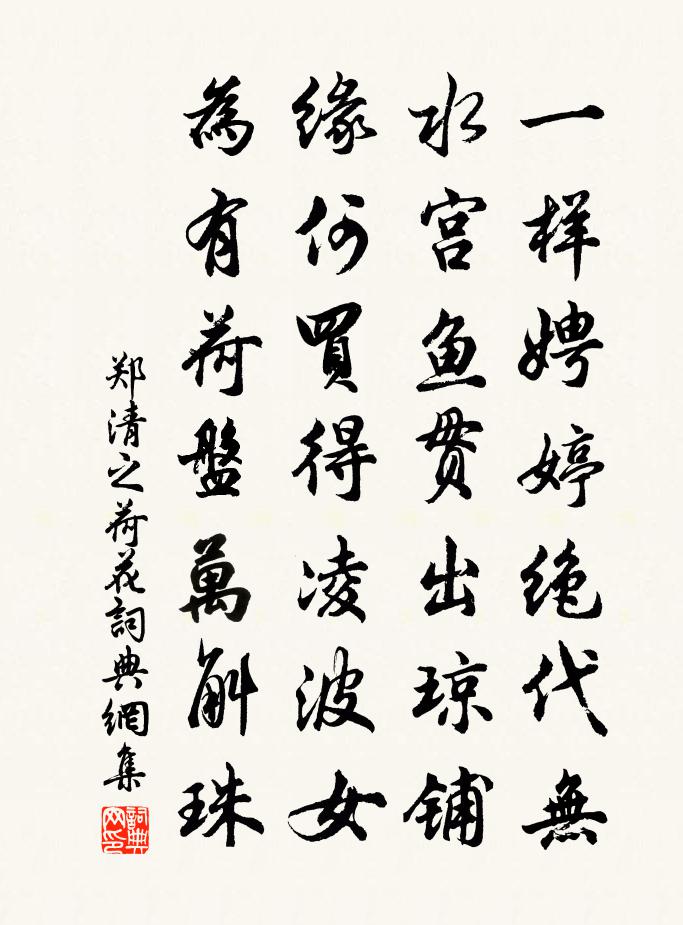 一样娉婷绝代無
水宫鱼贯出琼铺
缘何買得凌波女
為有荷盤萬斛珠
郑清之荷花詞典網集
詞典网印